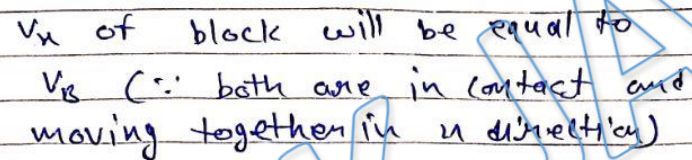 Vx of block will be equal to
VB (∵ both are in contact and
moving together in x direction)